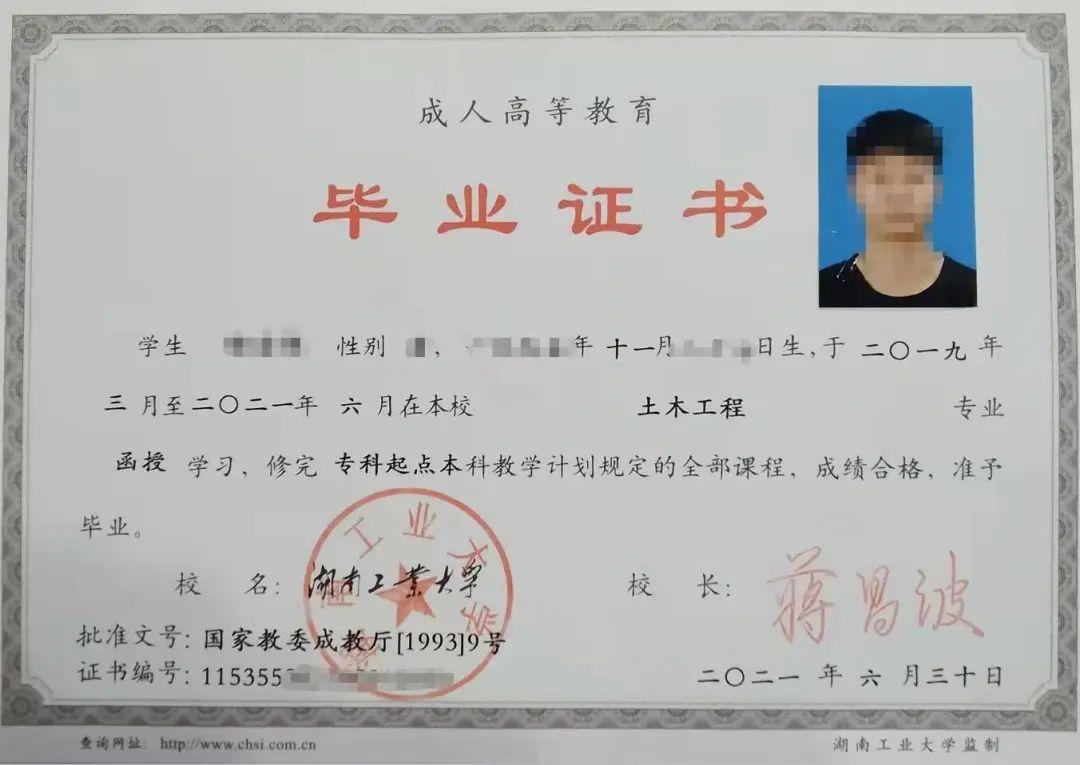 成人高等教育
毕业证书
学生 性别 , 年 十一月 日生,于 二〇一九 年
三 月至 二〇二一年 六 月在本校 土木工程 专业
函授 学习, 修完 专科起点本科教学计划规定的全部课程, 成绩合格, 准予
毕业。
校 名: 湖南工业大学 校 长: 蒋昌波
批准文号: 国家教委成教厅[1993]9号
证书编号: 115355
二〇二一 年 六 月三十日
查询网址: http://www.chsi.com.cn 湖南工业大学监制